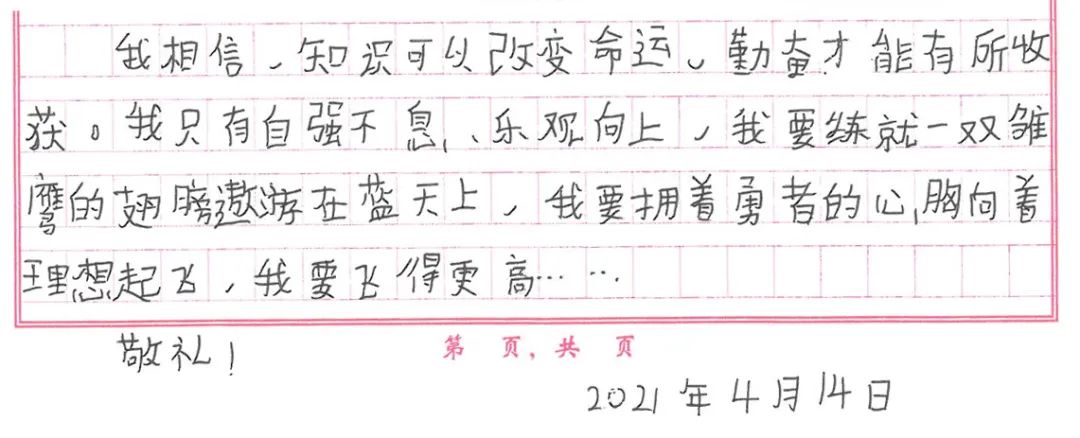 我相信，知识可以改变命运。勤奋才能有所收
获。我只有自强不息、乐观向上，我要练就一双雏
鹰的翅膀遨游在蓝天上，我要拥着勇者的心胸向着
理想起飞，我要飞得更高……
敬礼！
第 页，共 页
2021年4月14日